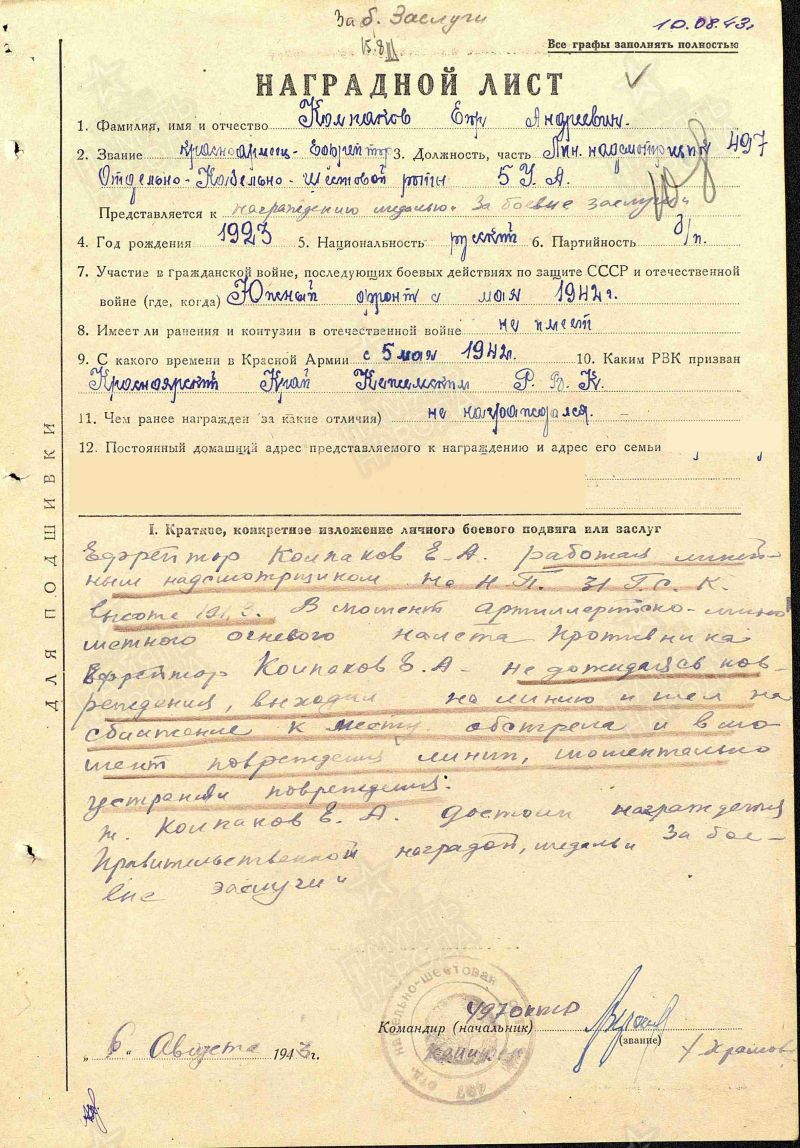 За б. Заслуги
10.08.43г.
15.8
Все графы заполнять полностью
НАГРАДНОЙ ЛИСТ
1. Фамилия, имя и отчество Колпаков Егр Андреевич.
2. Звание красноармеец-Ефрейтор 3. Должность, часть Лин. надсмотрщик 497
Отдельно-Кабельно-шестовой роты 5 У.А.
Представляется к награждению медалью "За боевые заслуги"
4. Год рождения 1923 5. Национальность русский 6. Партийность б/п.
7. Участие в гражданской войне, последующих боевых действиях по защите СССР и отечественной
войне (где, когда) Южный фронт с мая 1942г.
8. Имеет ли ранения и контузии в отечественной войне не имеет
9. С какого времени в Красной Армии с 5 мая 1942г. 10. Каким РВК призван
Красноярский Край Кежемским Р.В.К.
11. Чем ранее награжден (за какие отличия) не награждался.
12. Постоянный домашний адрес представляемого к награждению и адрес его семьи
ДЛЯ ПОДШИВКИ
I. Краткое, конкретное изложение личного боевого подвига или заслуг
Ефрейтор Колпаков Е.А. работая линей-
ным надсмотрщиком на Н.П. 31 Г.С.К.
высоте В момент артиллерийско-мино
метного огневого налета противника
Ефрейтор Колпаков Е.А. не дожидаясь пов-
реждения, выходил на линию и шел на
сближение к месту обстрела и в мо-
мент повреждения линии, моментально
устранял повреждения.
т. Колпаков Е.А. достоин награждения
Правительственной наградой, медалью За бое-
вые заслуги"
497 ОКШР
Командир (начальник)
(звание)
"6" Августа 1943г.
/Храмов